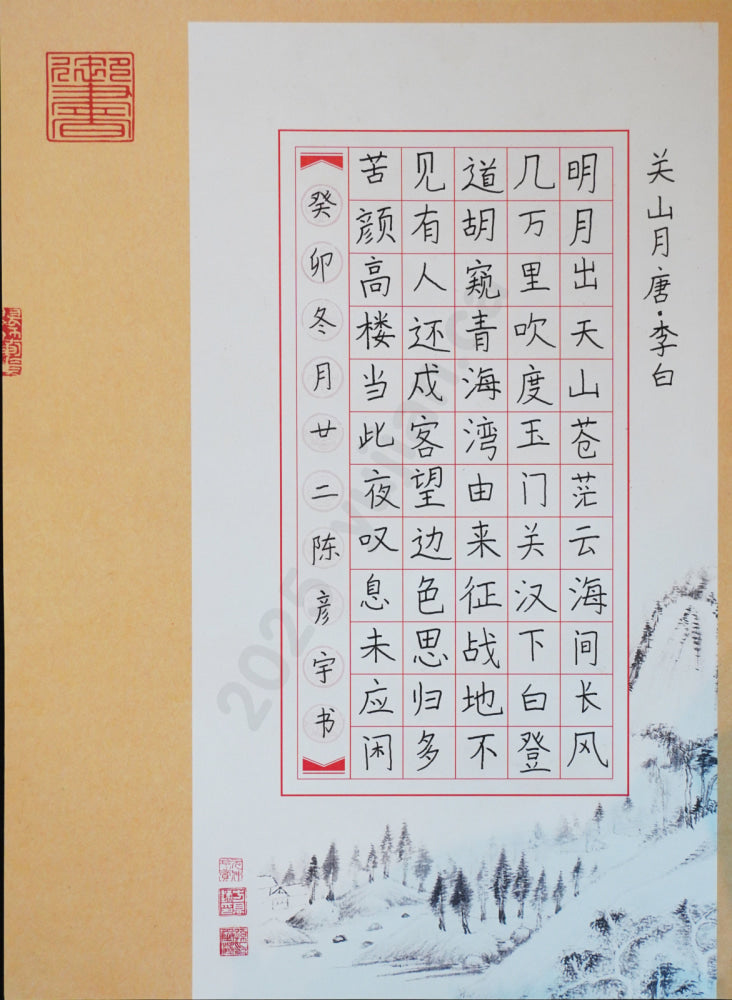 关山月唐·李白
明月出天山苍茫云海间长风
几万里吹度玉门关汉下白登
道胡窥青海湾由来征战地不
见有人还戍客望边色思归多
苦颜高楼当此夜叹息未应闲
癸卯冬月廿二陈彦宇书
2025